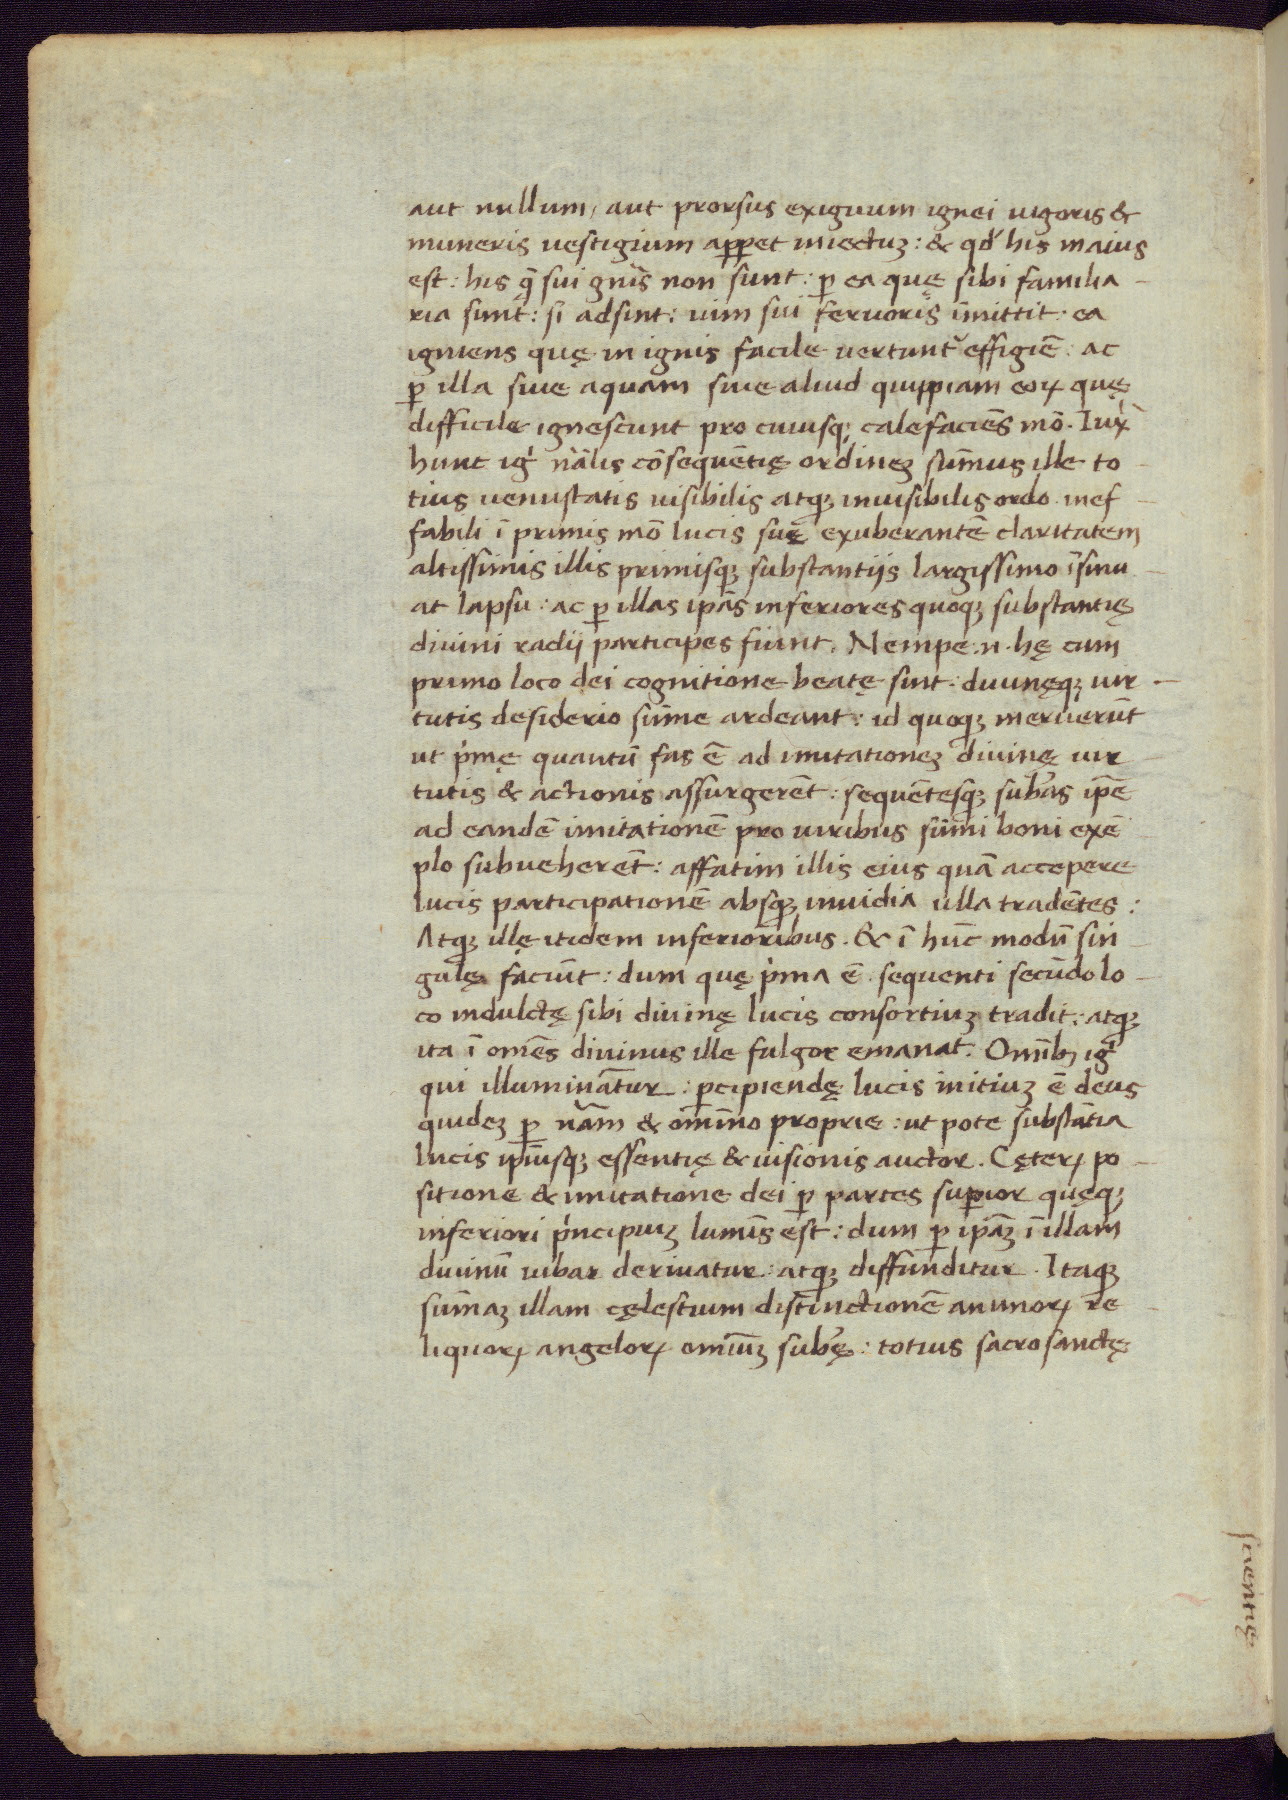 aut nullum, aut prorsus exiguum ignei uigoris &
muneris uestigium apparet iniectuʒ: & qđ his maius
est: his q̄ sui gn̄is non sunt: ꝑ ea quę sibi familia-
ria sunt: si adsint: uim sui feruoris īmittit. ea
igniens quę in ignis facile uertunt᷑ effigiē: ac
ꝑ illa siue aquam siue aliud quippiam eoꝝ quę
difficile ignescunt pro cuiusqꝫ calefaciēs mō. Iux̀
hunc igͥ nālis cōsequētię ordineʒ sūmus ille to-
tius uenustatis uisibilis atqꝫ inuisibilis ordo. inef-
fabili ī primis mō lucis suę exuberantē claritatem
altissimis illis primisqꝫ substantijs largissimo īsinu-
at lapsu: ac ꝑ illas ip̄as inferiores quoqꝫ substantię
diuini radij participes fiunt. Nempe .n. hę cum
primo loco dei cognitione beatę sint: diuinęqꝫ uir-
tutis desiderio sūme ardeant: id quoqꝫ meruerūt
ut pͥmę quantū fas ē ad imitationeʒ diuinę uir-
tutis & actionis assurgerēt: sequētesqꝫ subās ip̄e
ad eandē imitationē pro uiribus sūmi boni exē-
plo subueherēt: affatim illis eius quā accepere
lucis participationē absqꝫ inuidia ulla tradētes:
Atqꝫ illę itidem inferioribus. & ī hūc modū sin-
gulę faciūt: dum quę pͥma ē. sequenti secūdo lo-
co indultę sibi diuinę lucis consortiuʒ tradit: atqꝫ
ita ī omēs diuinus ille fulgor emanat. Omībꝫ igͥ
qui illuminātur: ꝑcipiendę lucis initiuʒ ē deus
quideʒ ꝑ nām & omīno proprie: ut pote substātia
lucis ipīusqꝫ essentię & uisionis auctor. Cęteꝝ po-
sitione & imitatione dei ꝑ partes suꝑior quęqꝫ
inferiori pͥncipiuʒ lumīs est: dum ꝑ ip̄aʒ ī illam
diuinū iubar deriuatur: atqꝫ diffunditur. Itaqꝫ
sūmaʒ illam cęlestium distinctionē animoꝝ re-
liquoꝝ angeloꝝ omīuʒ subę: totius sacrosanctę
scientię